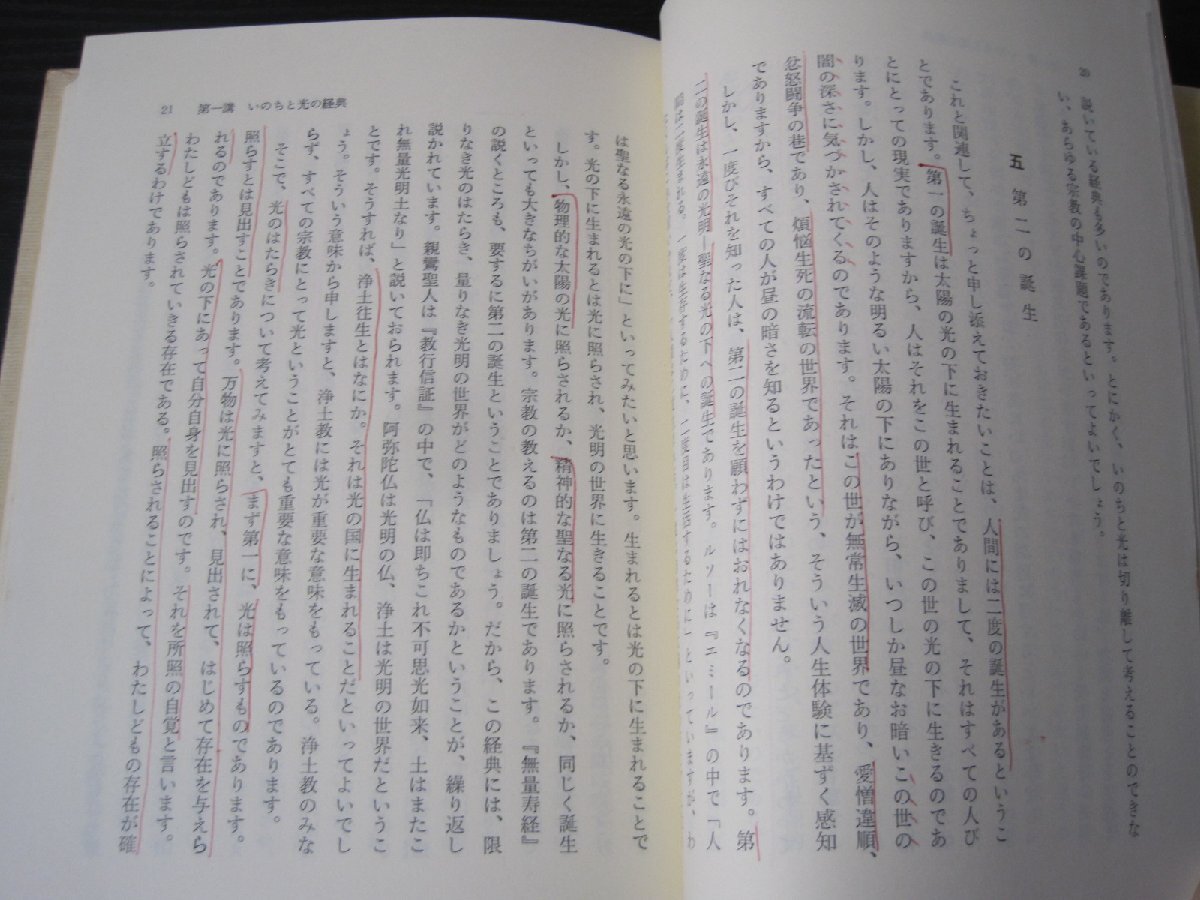 20
説いている経典も多いのであります。とにかく、いのちと光は切り離して考えることのできな
い、あらゆる宗教の中心課題であるといってよいでしょう。
五 第二の誕生
これと関連して、ちょっと申し添えておきたいことは、人間には二度の誕生があるというこ
とであります。第一の誕生は太陽の光の下に生まれることでありまして、それはすべての人び
とにとっての現実でありますから、人はそれをこの世と呼び、この世の光の下に生きるのであ
ります。しかし、人はそのような明るい太陽の下にありながら、いつしか昼なお暗いこの世の
闇の深さに気づかされてくるのであります。それはこの世が無常生滅の世界であり、愛憎違順、
忿怒闘争の巷であり、煩悩生死の流転の世界であったという、そういう人生体験に基ずく感知
でありますから、すべての人が昼の暗さを知るというわけではありません。
しかし、一度びそれを知った人は、第二の誕生を願わずにはおれなくなるのであります。第
二の誕生は永遠の光明―聖なる光の下への誕生であります。ルソーは『エミール』の中で「人
間は二度生まれる、一度は生存するために、二度目は生活するために」といっていますが、わ
21 第一講 いのちと光の経典
は聖なる永遠の光の下に」といってみたいと思います。生まれるとは光の下に生まれることで
す。光の下に生まれるとは光に照らされ、光明の世界に生きることです。
しかし、物理的な太陽の光に照らされるか、精神的な聖なる光に照らされるか、同じく誕生
といっても大きなちがいがあります。宗教の教えるのは第二の誕生であります。『無量寿経』
の説くところも、要するに第二の誕生ということでありましょう。だから、この経典には、限
りなき光のはたらき、量りなき光明の世界がどのようなものであるかということが、繰り返し
説かれています。親鸞聖人は『教行信証』の中で、「仏は即ちこれ不可思光如来、土はまたこ
れ無量光明土なり」と説いておられます。阿弥陀仏は光明の仏、浄土は光明の世界だというこ
とです。そうすれば、浄土往生とはなにか。それは光の国に生まれることだといってよいでし
ょう。そういう意味から申しますと、浄土教には光が重要な意味をもっている。浄土教のみな
らず、すべての宗教にとって光ということがとても重要な意味をもっているのであります。
そこで、光のはたらきについて考えてみますと、まず第一に、光は照らすものであります。
照らすとは見出すことであります。万物は光に照らされ、見出されて、はじめて存在を与えら
れるのであります。光の下にあって自分自身を見出すのです。それを所照の自覚と言います。
わたしどもは照らされていきる存在である。照らされることによって、わたしどもの存在が確
立するわけであります。